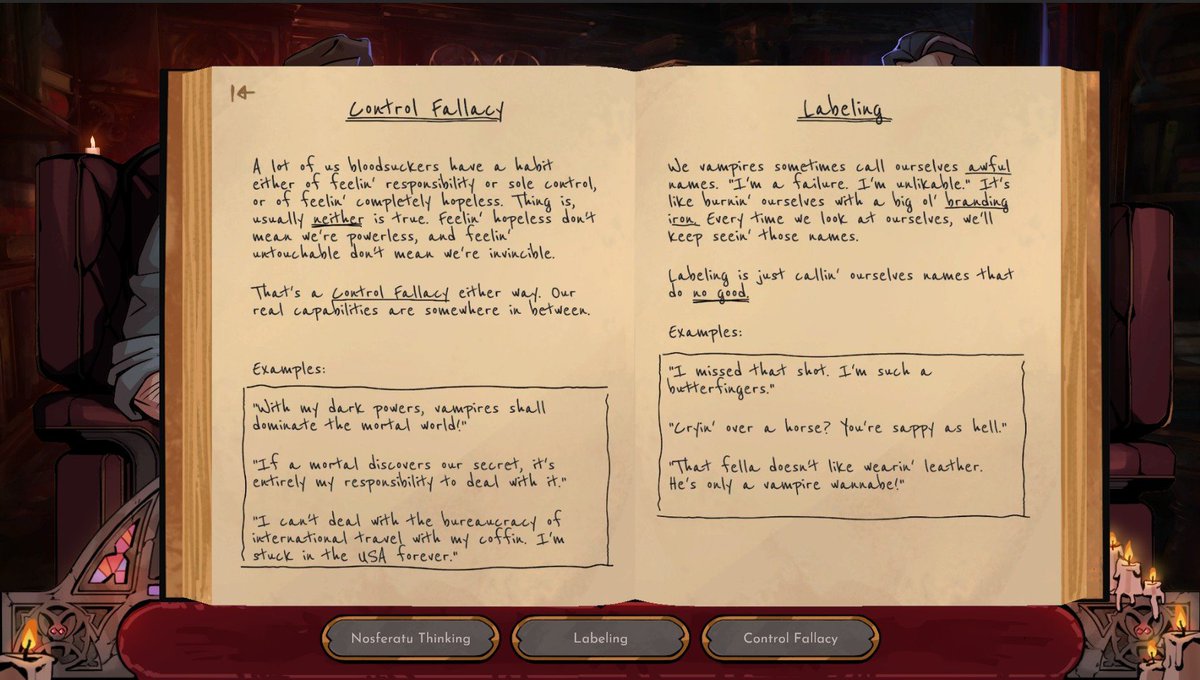 Control Fallacy
A lot of us bloodsuckers have a habit
either of feelin' responsibility or sole control,
or of feelin' completely hopeless. Thing is,
usually neither is true. Feelin' hopeless don't
mean we're powerless, and feelin'
untouchable don't mean we're invincible.
That's a Control Fallacy either way. Our
real capabilities are somewhere in between.
Examples:
"With my dark powers, vampires shall
dominate the mortal world!"
"If a mortal discovers our secret, it's
entirely my responsibility to deal with it."
"I can't deal with the bureaucracy of
international travel with my coffin. I'm
stuck in the USA forever."
Labeling
We vampires sometimes call ourselves awful
names. "I'm a failure. I'm unlikable." It's
like burnin' ourselves with a big ol' branding
iron. Every time we look at ourselves, we'll
keep seein' those names.
Labeling is just callin' ourselves names that
do no good.
Examples:
"I missed that shot. I'm such a
butterfingers."
"Cryin' over a horse? You're sappy as hell."
"That fella doesn't like wearin' leather.
He's only a vampire wannabe!"
Nosferatu Thinking
Labeling
Control Fallacy